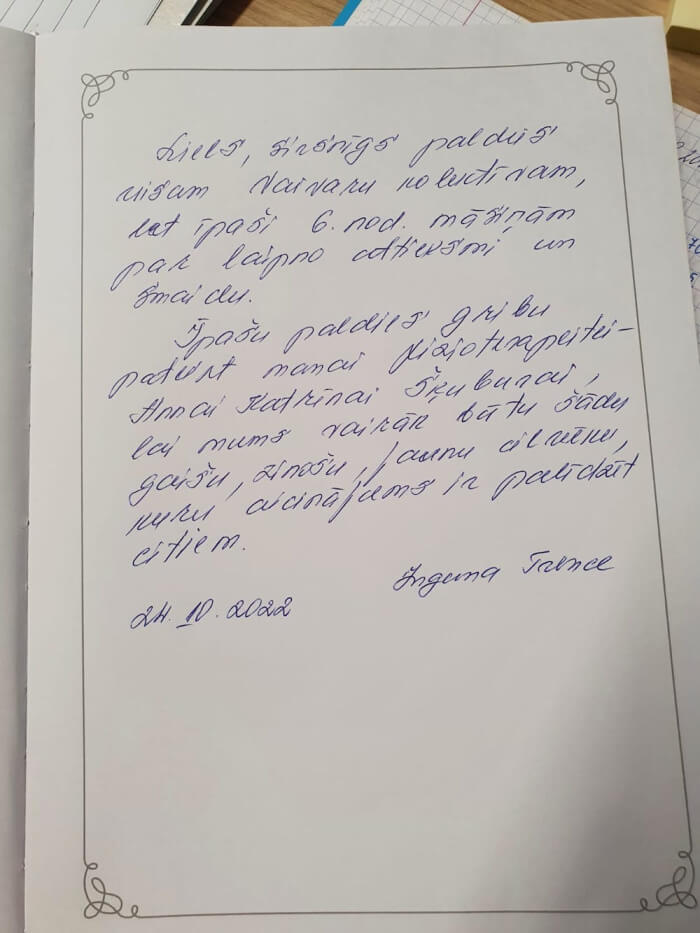 Liels, sirsnīgs paldies
visam Vaivaru kolektīvam,
bet īpaši 6. nod. māsiņām
par laipno attieksmi un
smaidu.
Īpašu paldies gribu
pateikt manai fizioterapeitei-
Annai Katrīnai Šķuburai,
lai mums vairāk būtu šādu
gaišu, zinošu, jaunu cilvēku,
kuru aicinājums ir palīdzēt
citiem.
Inguna
24. 10. 2022